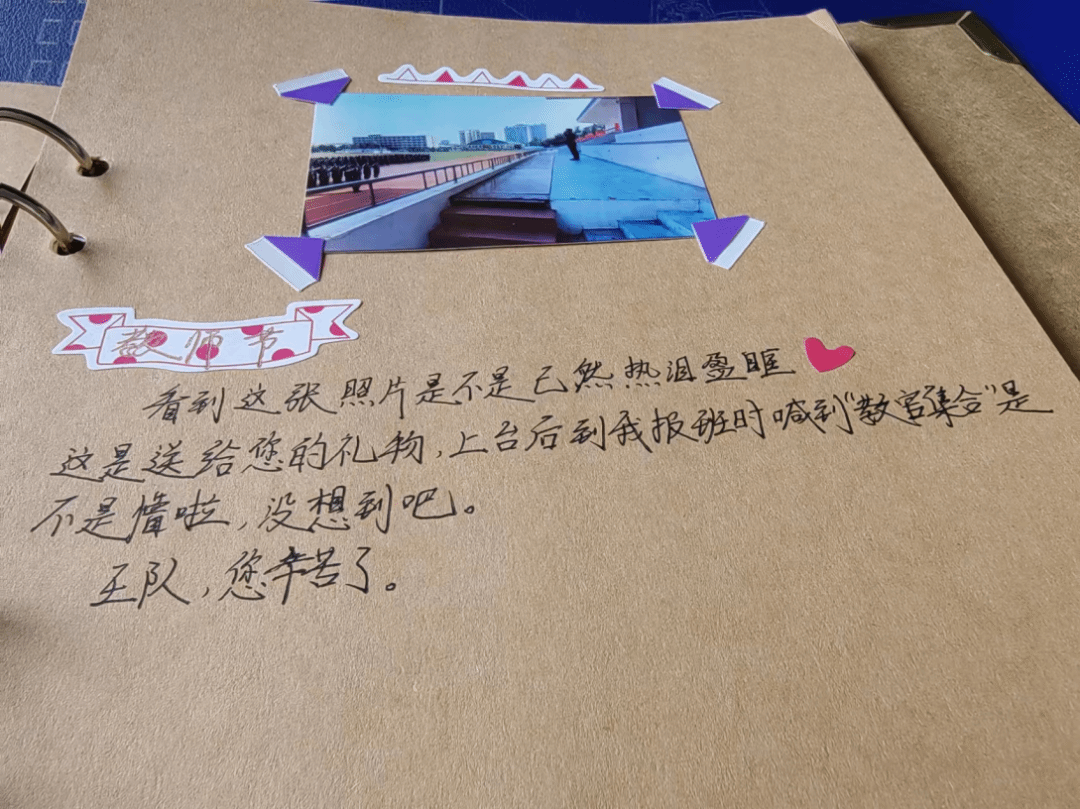 教师节
看到这张照片是不是已然热泪盈眶
这是送给您的礼物,上台后到我报班时喊到“教官集合”是
不是懵啦,没想到吧。
王队,您辛苦了。